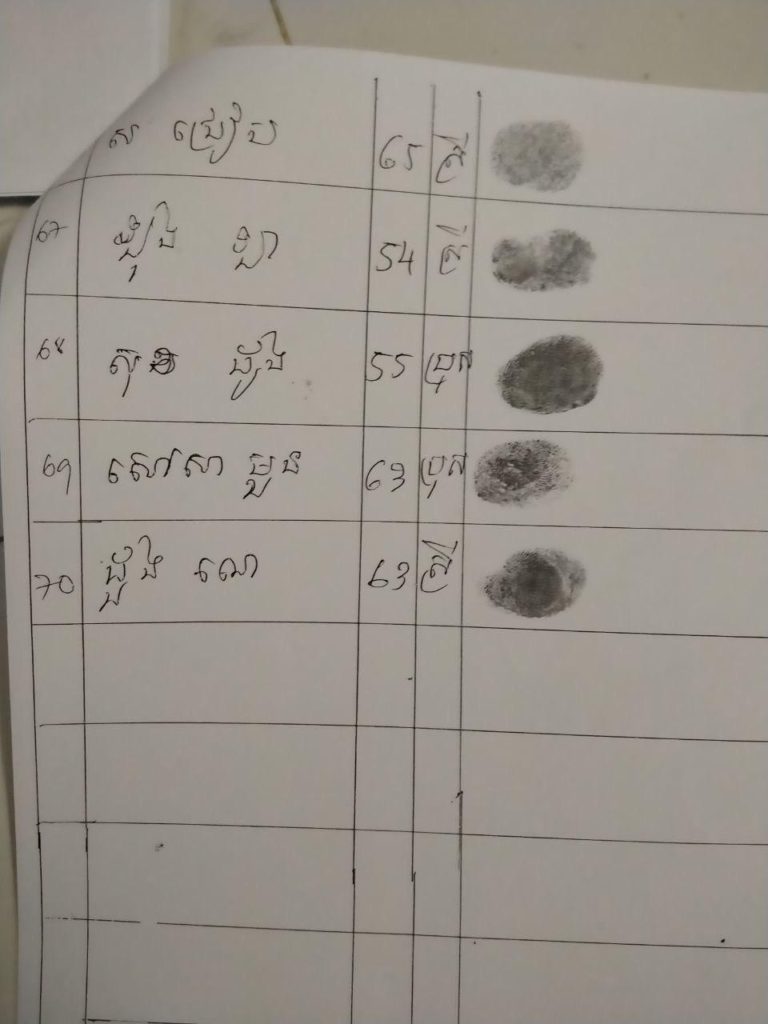 ស ជ្រៀប 65 ស្រី
67 ឡុង ឡា 54 ស្រី
68 សុខ ផាំង 55 ប្រុស
69 សៅសា មួន 63 ប្រុស
70 ផួង ណេ 63 ស្រី